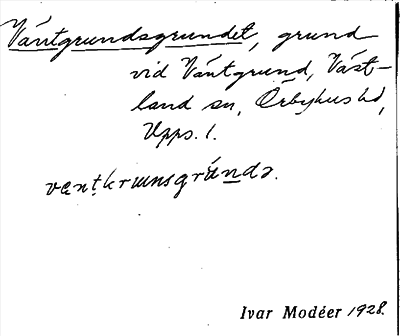 Väntgrundsgrundet, grund
vid Väntgrund, Väst-
land sn, Örbyhus hd,
Upps. l.
væntkrɯnsgrúndə.
Ivar Modéer 1928.